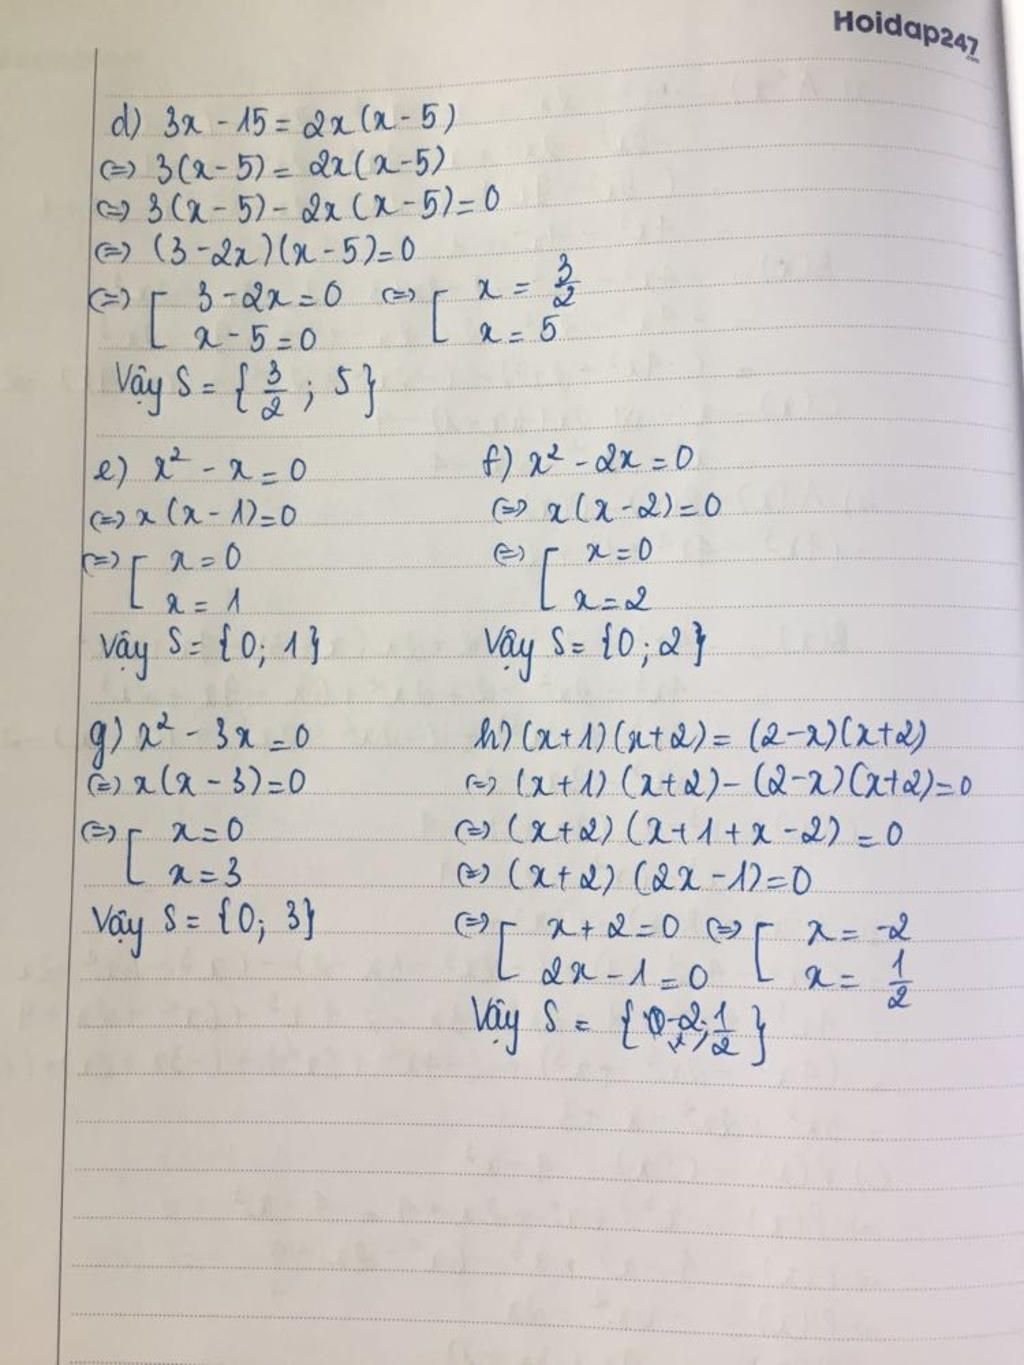 Hoidap247
.com
d) 3x - 15 = 2x(x - 5)
(=) 3(x - 5) = 2x(x - 5)
(=) 3(x - 5) - 2x(x - 5) = 0
(=) (3 - 2x)(x - 5) = 0
(=) [ 3 - 2x = 0 (=) [ x = 3/2
x - 5 = 0 x = 5
Vậy S = { 3/2 ; 5 }
e) x² - x = 0
(=) x(x - 1) = 0
(=) [ x = 0
x = 1
Vậy S = {0; 1}
f) x² - 2x = 0
(=) x(x - 2) = 0
(=) [ x = 0
x = 2
Vậy S = {0; 2}
g) x² - 3x = 0
(=) x(x - 3) = 0
(=) [ x = 0
x = 3
Vậy S = {0; 3}
h) (x+1)(x+2) = (2-x)(x+2)
(=) (x+1)(x+2) - (2-x)(x+2) = 0
(=) (x+2)(x+1+x-2) = 0
(=) (x+2)(2x-1) = 0
(=) [ x + 2 = 0 (=) [ x = -2
2x - 1 = 0 x = 1/2
Vậy S = { -2; 1/2 }